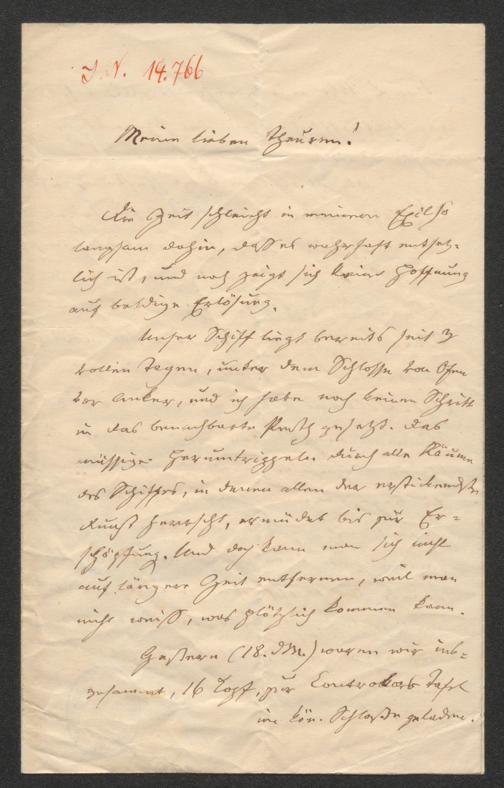 I. N. 14.766
Meine lieben Theuren!
Die Zeit schleicht in meinem Exil so
langsam dahin, daß es wahrhaft entsetz-
lich ist, und noch zeigt sich keine Hoffnung
auf baldige Erlösung.
Unser Schiff liegt bereits seit 3
vollen Tagen, unter dem Schlosse von Ofen
vor Anker, und ich habe noch keinen Schritt
in das benachbarte Pesth gesetzt. Das
müssige Herumtrippeln durch alle Räume
des Schiffes, in denen allen der erstickendste
Dunst herrscht, ermüdet bis zur Er-
schöpfung. Und doch kann man sich nicht
auf längere Zeit entfernen, weil man
nicht weiß, was plötzlich kommen kann.
Gestern (18. d. M.) waren wir ins-
gesammt, 16 Kopf, zur Controlors Tafel
im kön. Schloße geladen.